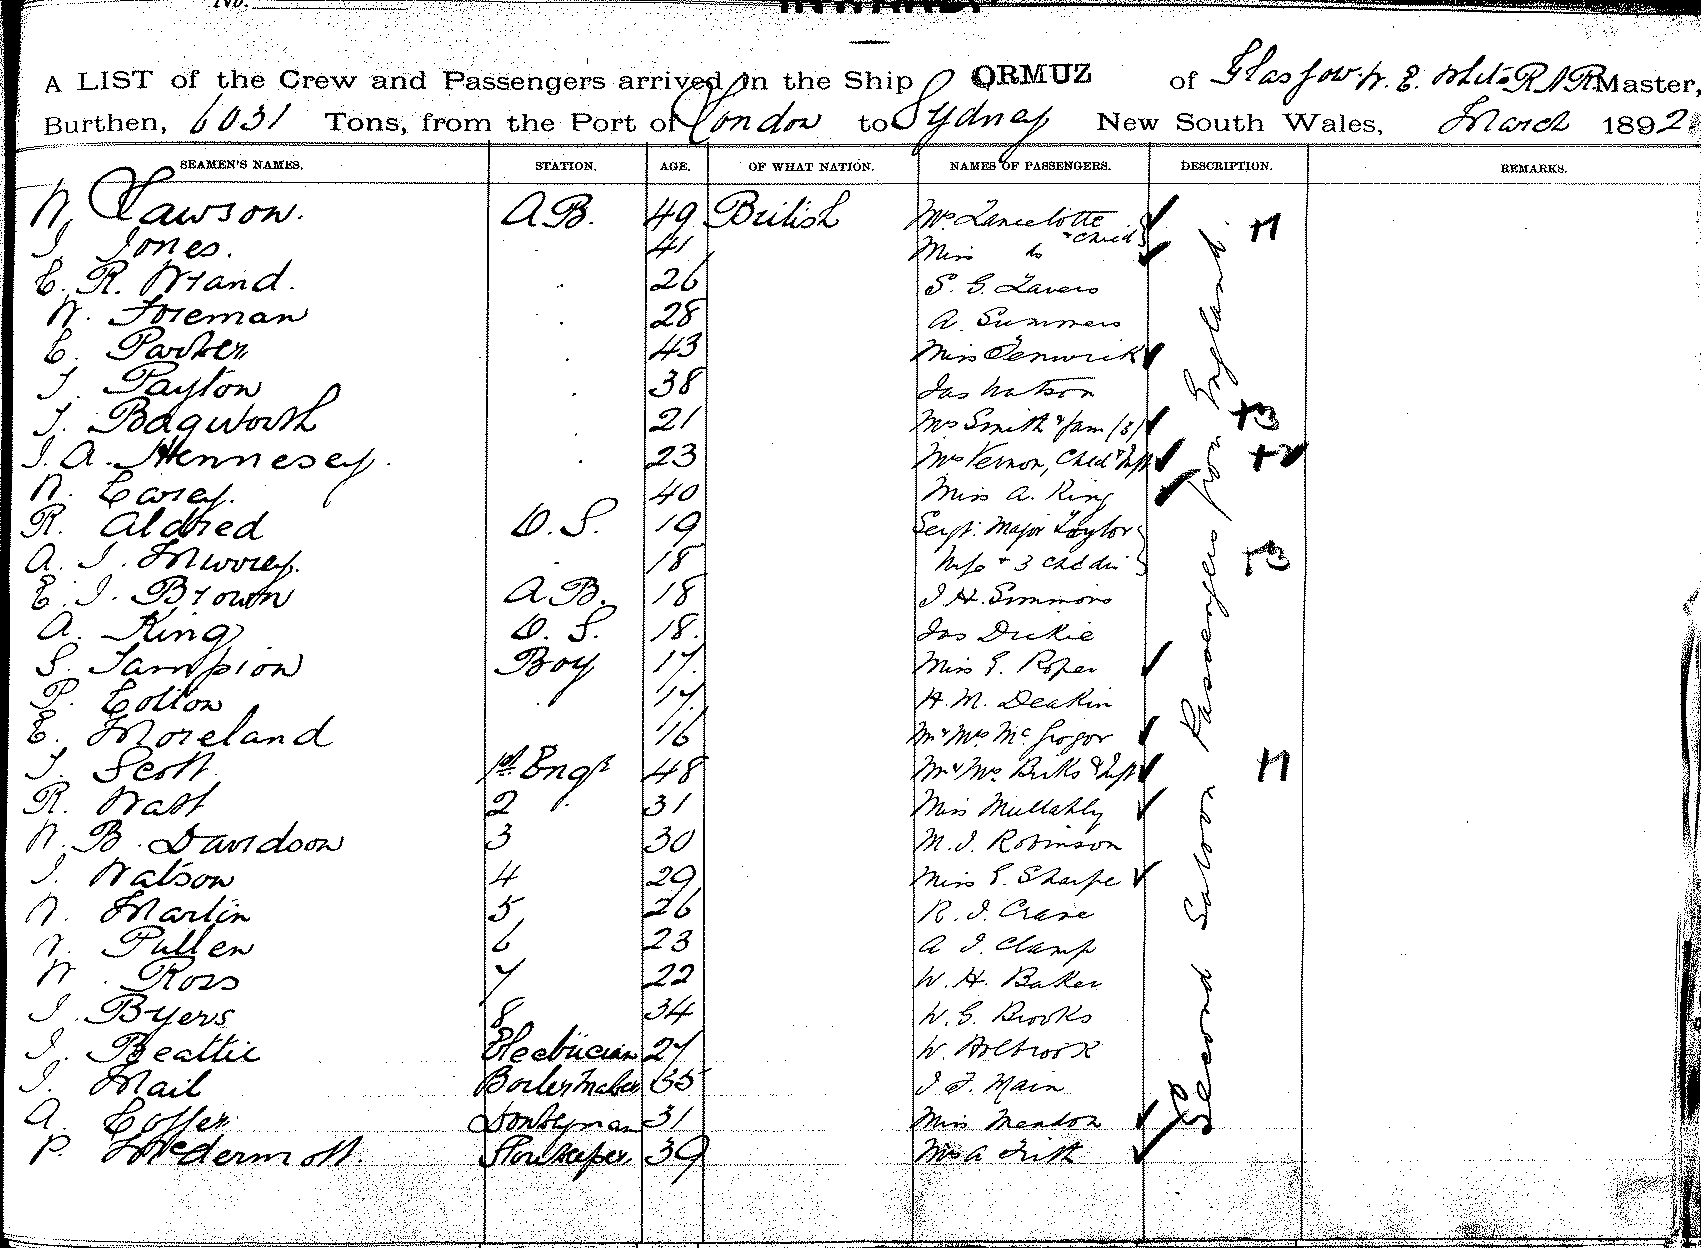 No.
A LIST of the Crew and Passengers arrived in the Ship ORMUZ of Glasgow W. E. White R N R Master,
Burthen, 6031 Tons, from the Port of London to Sydney New South Wales, March 1892
SEAMEN'S NAMES. STATION. AGE. OF WHAT NATION. NAMES OF PASSENGERS. DESCRIPTION. REMARKS.
W. Lawson. A.B. 49 British Mrs Lancelotte
J. Jones. 41 Miss do + Child
E. R. Wrand. 26 S. G. Lavers
W. Foreman 28 A. Summers
E. Parker 43 Miss Fenwick
J. Payton 38 Jas Watson
J. Bagworth 21 Mrs Smith & fam (3)
J. A. Hennesey. 23 Mrs Vernon, Child & Inft
W. Carey. 40 Miss A. King
R. Aldred O. S. 19 Sergt. Major Taylor
A. J. Murray. 18 Wife + 3 childn
E. J. Brown A B. 18 J H. Simmons
A. King O. S. 18. Jas Dickie
S. Tampion Boy 17 Miss E. Roper
P. Cotton 17 H. M. Deakin
E. Moreland 16 Mr & Mrs Mc Gregor
J. Scott 1st Engr 48 Mr & Mrs Birks & Inft
R. Wast 2 31 Miss Mullahly
W. B. Davidson 3 30 M. J. Robinson
J. Watson 4 29 Miss E. Sharpe
W. Martin 5 26 R. J. Crane
Pullen 6 23 A J. Clamp
W. Ross 7 22 W. H. Baker
J. Byers 8 34 W. G. Brooks
J. Beattie Electrician 27 W. Holbrook
J. Mail Boiler Maker 35 J. F. Main
A. Coffer Donkeyman 31 Miss Meadon
P. McDermott. Storekeeper 39 Mrs A Frith
Second Saloon Passengers from England.
+1
+3
+2
+3
+1